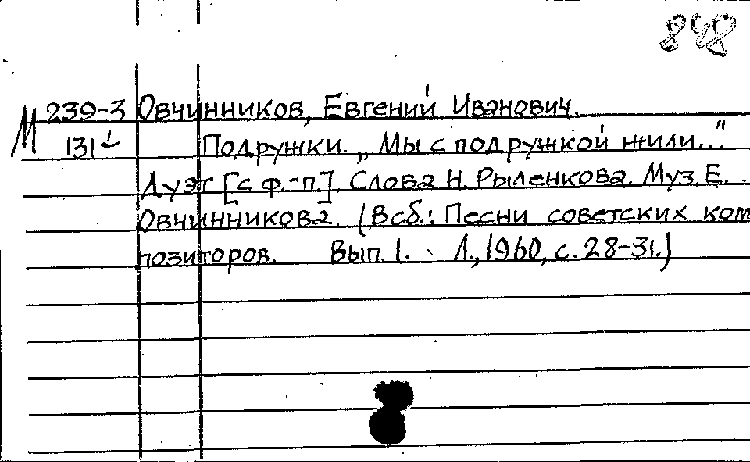 848
М 239-3 Овчинников, Евгений Иванович.
131 Подружки. „Мы с подружкой жили..."
Дуэт [с ф.-п.]. Слова Н. Рыленкова. Муз. Е.
Овчинникова. (В сб.: Песни советских ком
позиторов. Вып. 1. Л., 1960, с. 28-31.)